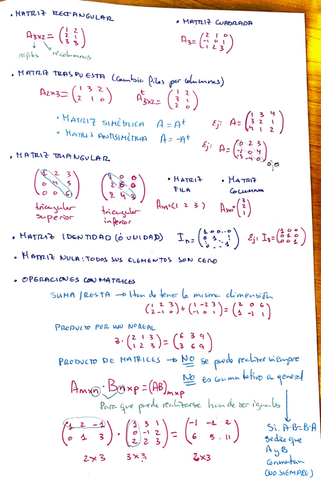 • MATRIZ RECTANGULAR
A3x2 = (1 2
1 1
3 3)
nºfilas nºcolumnas
• MATRIZ CUADRADA
A3 = (2 1 0
-1 0 1
1 2 3)
• MATRIZ TRASPUESTA (Cambio filas por columnas)
A2x3 = (1 3 2
2 1 0) Aᵗ3x2 = (1 2
3 1
2 0)
• MATRIZ SIMÉTRICA A = Aᵗ Ej: A = (1 3 4
3 2 1
4 1 2)
• MATRIZ ANTISIMETRÍA A = -Aᵗ Ej: A = (0 2 3
-2 0 4
-3 -4 0)
• MATRIZ TRIANGULAR
(1 2 3
0 4 5
0 0 6)
triangular
superior
triangular
inferior
• MATRIZ
FILA
(1 2 3)
• MATRIZ
COLUMNA
(3
2
1)
• MATRIZ IDENTIDAD (Ó UNIDAD) In = Ej: I3 = (1 0 0
0 1 0
0 0 1)
• MATRIZ NULA: TODOS SUS ELEMENTOS SON CERO
• OPERACIONES CON MATRICES
SUMA/RESTA → Han de tener la misma dimensión
(1 2 3
2 -1 0) +
PRODUCTO POR UN Nº REAL
3 · (2 1 3
1 2 3) = (6 3 9
3 6 9)
PRODUCTO DE MATRICES → NO se puede realizar siempre
NO es conmutativo en general
Amxn · Bnxp = (AB)mxp
Para que pueda realizarse han de ser iguales
(1 2 -1
0 1 3) · (1 3 1
0 -1 2
2 2 3) = (-1 -1 2
6 5 11)
2x3 3x3 2x3
Si A·B = B·A
se dice que
A y B
conmutan
(NO SIEMPRE)